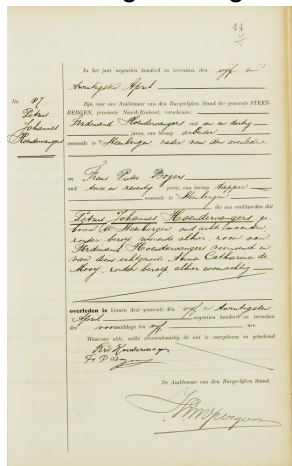 44
In het jaar negentien honderd en zeventien, den vijf en
twintigsten April
zijn voor ons Ambtenaar van den Burgerlijken Stand der gemeente STEEN-
BERGEN, provincie Noord-Brabant, verschenen:
No. 87.
Petrus
Johannes
Hoendervangers
Ferdinand Hoendervangers oud en dertig
jaren, van beroep arbeider
wonende te Steenbergen vader van den overledene
en Frans Pieter
oud twee en zeventig jaren, van beroep tapper
wonende te Steenbergen
die ons verklaarden dat
Petrus Johannes Hoendervangers ge-
boren te Steenbergen oud acht maanden
zonder beroep wonende alhier, zoon van
Ferdinand Hoendervangers voornoemd en
van diens echtgenoote Anna Catharina de
Mooy, zonder beroep alhier woonachtig
overleden is binnen deze gemeente den vijf en twintigsten
April negentien honderd en zeventien
des voormiddags ten vijf ure.
Waarvan akte, welke overeenkomstig de wet is voorgelezen en geteekend
Ferd Hoendervangers
Fr P
De Ambtenaar van den Burgerlijken Stand,